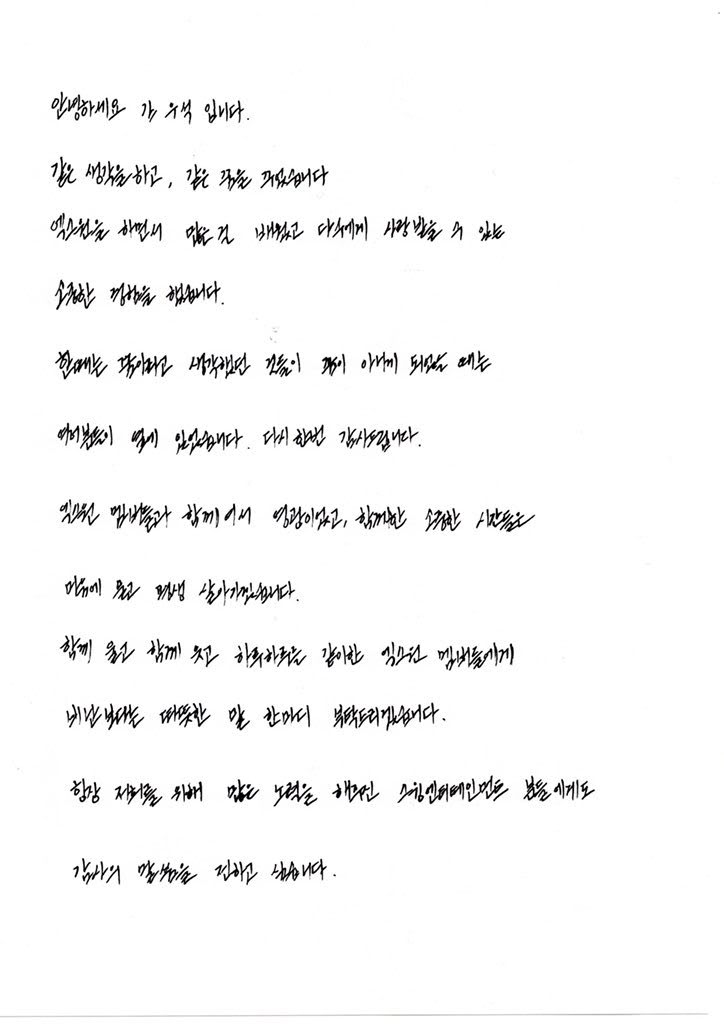 안녕하세요 김우석 입니다.
같은 생각을하고, 같은 꿈을 꾸었습니다
엑스원을 하면서 많은걸 배웠고 다수에게 사랑 받을 수 있는
소중한 경험을 했습니다.
한때는 꿈이라고 생각했던 것들이 꿈이 아니게 되었을 때는
여러분들이 옆에 있었습니다. 다시한번 감사드립니다.
엑스원 멤버들과 함께여서 영광이었고, 함께한 소중한 시간들은
마음에 품고 평생 살아가겠습니다.
함께 울고 함께 웃고 하루하루를 같이한 엑스원 멤버들에게
비난보다는 따뜻한 말 한마디 부탁드리겠습니다.
항상 저희를 위해 많은 노력을 해주신 스윙엔터테인먼트 분들에게도
감사의 말씀을 전하고 싶습니다.